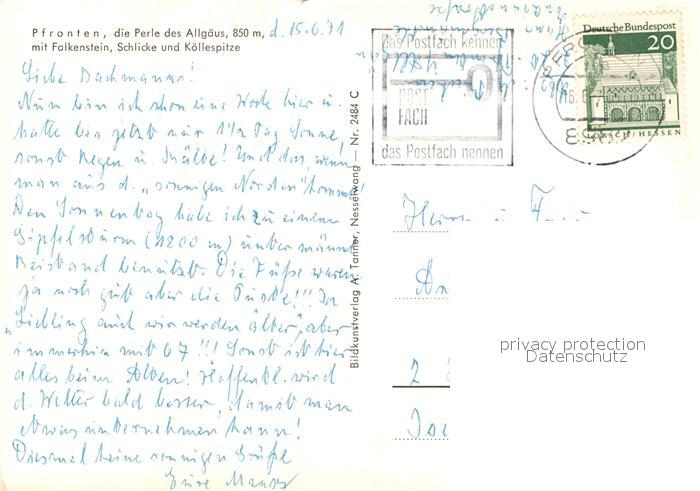 Pfronten, die Perle des Allgäus, 850 m, d. 15.6.71
mit Falkenstein, Schlicke und Köllespitze
Liebe Bachmanns!
Nun bin ich schon eine Woche hier u.
hatte bis jetzt nur 1½ Tag Sonne,
sonst Regen u. Kälte! Und das, wenn
man aus d. „sonnigen Norden" kommt!
Den Sonnentag habe ich zu einem
Gipfelsturm (1800 m) unter männl.
Beistand benutzt. Die Füße waren
ja noch gut aber die Puste!!! Ja
„Liebling auch wir werden älter", aber
immerhin mit 67!!! Sonst ist hier
alles beim Alten! Hoffentl. wird
d. Wetter bald besser, damit man
etwas unternehmen kann!
Diesmal keine sonnigen Grüße
Eure
Bildkunstverlag A. Tanner, Nesselwang — Nr. 2484 C
das Postfach kennen
POST
FACH
das Postfach nennen
Deutsche Bundespost
20
LORSCH/HESSEN
Herrn u. Frau
2
privacy protection
Datenschutz